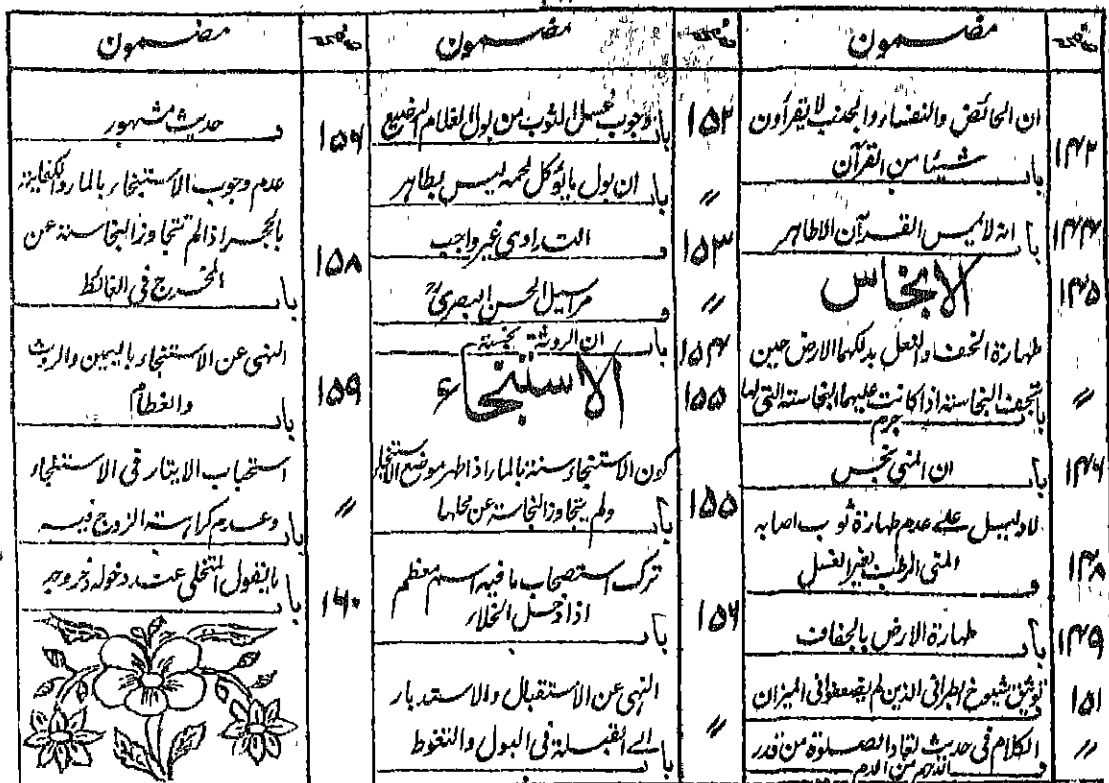 صفحہ مضمون
۱۴۲ ان الحائض والنفساء والجنب لا یقرأون
باب شیئا من القرآن
۱۴۴ باب انه لا یمس القرآن الا طاہر
۱۴۵ الانجاس
〃 طہارة الخف والنعل بدلکہما الارض حین
باب تجفف النجاسة اذا کانت علیہما النجاسة التی لہا
جرم
۱۴۶ باب ان المنی نجس
۱۴۸ لا دلیل علے عدم طہارة ثوب اصابه
ف المنی الرطب بغیر الغسل
۱۴۹ باب طہارة الارض بالجفاف
۱۵۱ توثیق شیوخ الطبرانی الذین لم یضعفوا فی المیزان
〃 الکلام فی حدیث تعاد الصلوة من قدر
ف الدرہم من الدم
صفحہ مضمون
۱۵۲ باب وجوب غسل الثوب من بول الغلام الرضیع
〃 باب ان بول مایؤکل لحمه لیس بطاہر
۱۵۳ ف التداوی غیر واجب
〃 ف مراسیل الحسن البصریؒ
۱۵۴ باب ان الروثة نجسة
۱۵۵ الاستنجاء
۱۵۵ کون الاستنجاء سنة بالماء اذا طہر موضع الاستنجاء
باب ولم یتجاوز النجاسة عن محلہا
۱۵۶ ترک استصحاب ما فیه اسم معظم
باب اذا دخل الخلاء
〃 النہی عن الاستقبال والاستدبار
باب الے القبلة فی البول والتغوط
صفحہ مضمون
۱۵۶ ف حدیث مشہور
عدم وجوب الاستنجاء بالماء والکفایة
بالحجر اذا لم تتجاوز النجاسة عن
۱۵۸ باب المخرج فی الغائط
النہی عن الاستنجاء بالیمین والروث
۱۵۹ باب والعظام
استحباب الایتار فی الاستنجاء
〃 باب وعدم کراہة الزوج فیه
۱۶۰ باب ما یقول المتخلی عند دخوله وخروجه